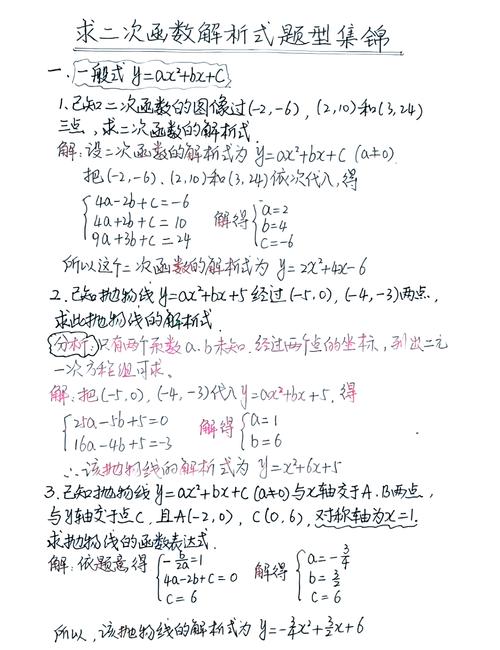 求二次函数解析式题型集锦
一.一般式 y=ax²+bx+c
1.已知二次函数的图像过(-2,-6),(2,10)和(3,24)
三点,求二次函数的解析式.
解:设二次函数的解析式为 y=ax²+bx+c (a≠0).
把(-2,-6)、(2,10)和(3,24)依次代入,得
{4a-2b+c=-6 {a=2
4a+2b+c=10 解得 b=4
9a+3b+c=24 c=-6
所以这个二次函数的解析式为 y=2x²+4x-6
2.已知抛物线y=ax²+bx+5经过(-5,0),(-4,-3)两点,
求此抛物线的解析式.
分析:只有两个系数a.b未知.经过两个点的坐标,列出二元
一次方程组可求。
解:把(-5,0),(-4,-3)代入y=ax²+bx+5,得
{25a-5b+5=0 解得 {a=1
16a-4b+5=-3 b=6
∴该抛物线的解析式为 y=x²+6x+5
3.已知抛物线y=ax²+bx+c(a≠0)与x轴交于A.B两点,
与y轴交于点C,且A(-2,0),C(0,6),对称轴为x=1.
求抛物线的函数表达式.
解:依题意,得 {-b/2a=1 {a=-3/4
4a-2b+c=0 解得 b=3/2
c=6 c=6
所以,该抛物线的解析式为 y=-3/4x²+3/2x+6